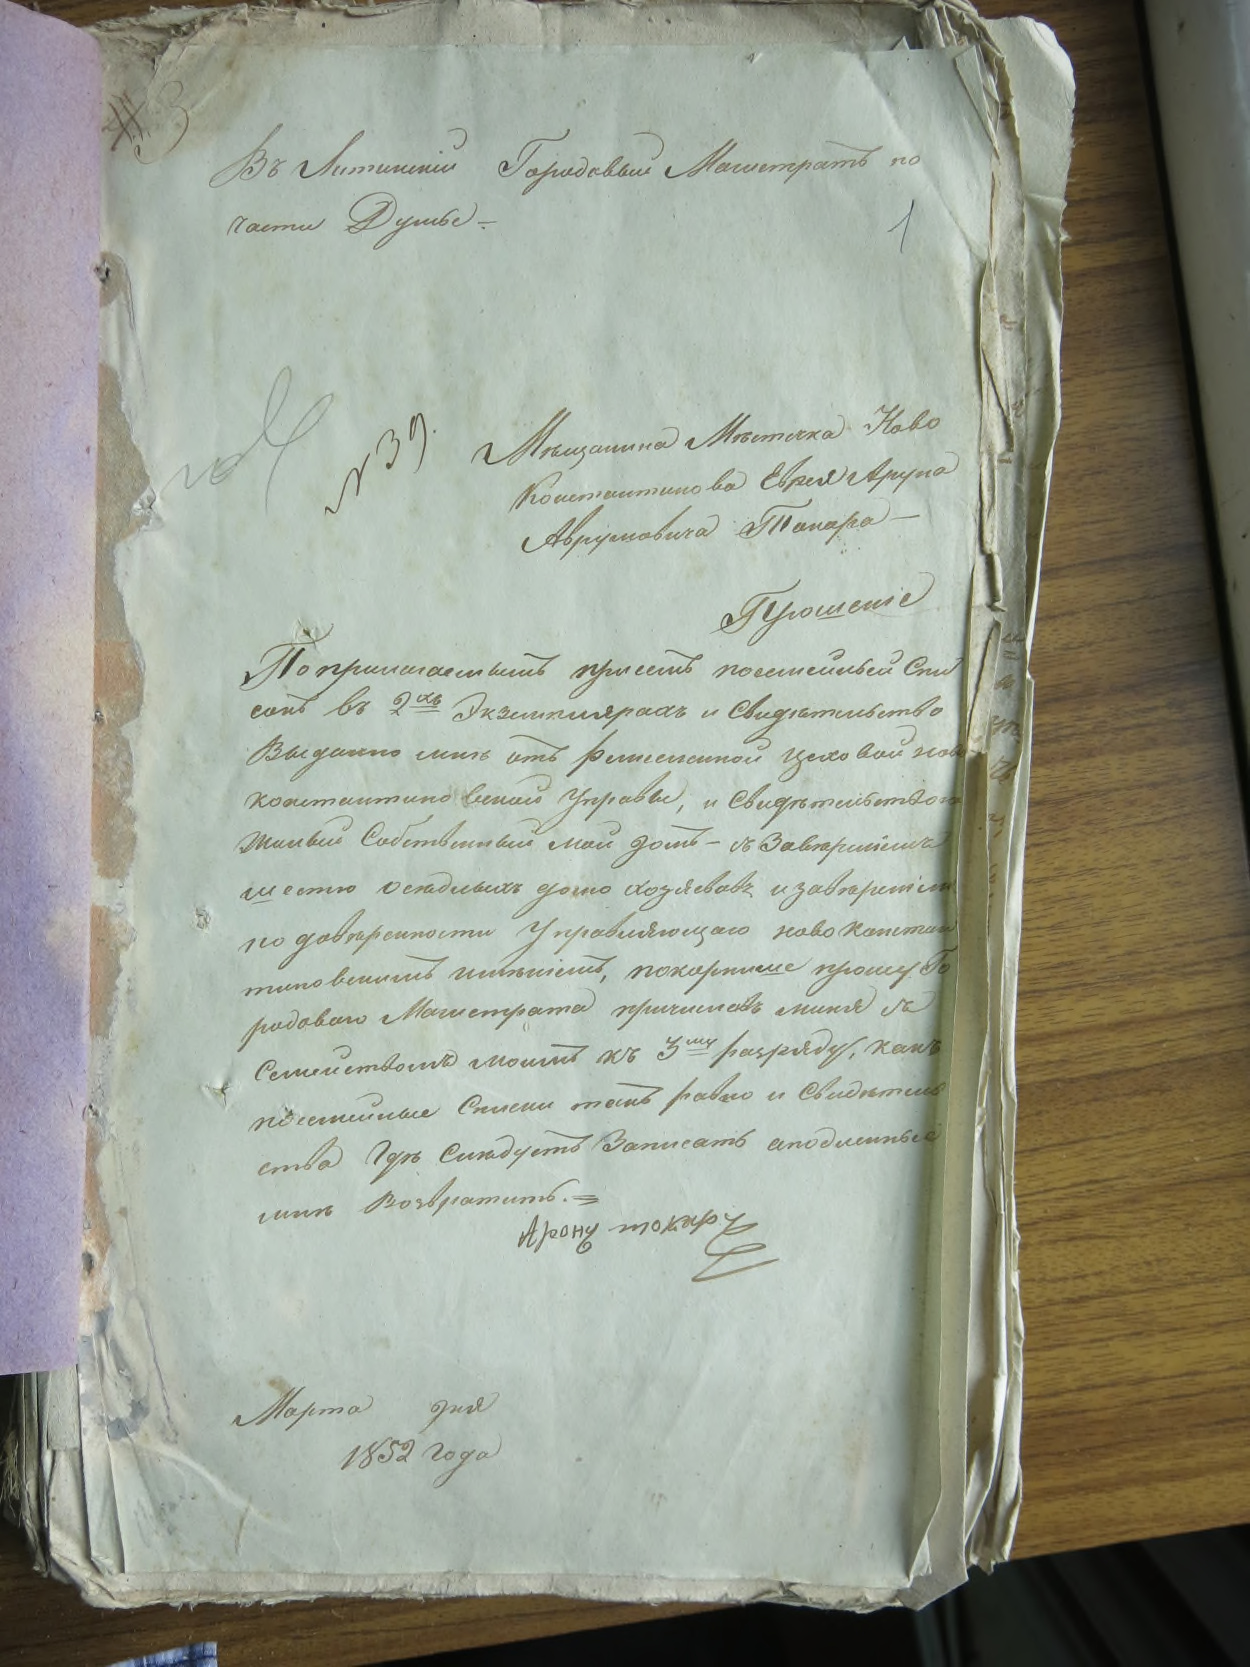 3
Въ Литинскій Городовый Магистратъ по
части Думы —
1
№ 39.
Мѣщанина Мѣстечка Ново
Константинова Еврея Аруна
Аврумовича Токара —
Прошеніе
По прилагаемымъ присемъ посемейный Спи
сокъ въ 2хъ Экземплярахъ и Свидѣтельство
Выданно мнѣ отъ Ремесленной Цеховой ново
константиновской Управы, и Свидѣтельство на
жилый Собственный мой домъ — съ Завѣреніемъ
шестю осѣдлыхъ домо хозяевовъ и завѣреніем
по довѣренности Управляющаго новоконстан
тиновскимъ имѣніемъ, покорнише прошу Го
родоваго Магистрата причислить миня съ
Семействомъ моимъ къ 3му разряду, какъ
посемейные Списки такъ равно и Свидѣтель
ства Гдѣ Слѣдуетъ Записать аподлинные
мнѣ Возвратить. =
Арону токару
Марта дня
1852 года